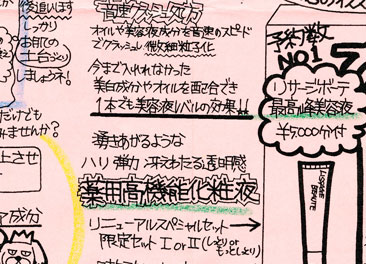 後追います
しっかり
お肌の
土台づくり
しましょうネ!
だけでも
みませんか?
上させ
ア成分
音速クラッシュ処方
オイルや美容液成分を音速のスピード
でクラッシュし微細粒子化
今まで入れれなかった
美白成分やオイルを配合でき
1本でも美容液レベルの効果!!
湧きあがるような
ハリ 弾力 冴えわたる透明感
薬用高機能化粧液
リニューアルスペシャルセット→
限定セット I or II (しっとり or
もっとしっとり)
予約数
NO1
リサージボーテ
最高峰美容液
¥15000分付
LISSAGE
BEAUTE